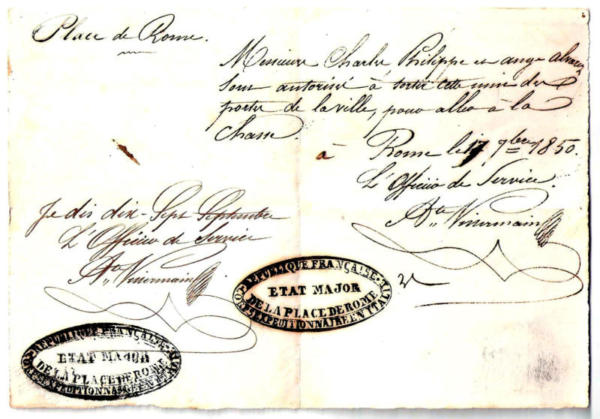 Place de Rome.
Messieurs Charles Philippe et ange alvarez
sont autorisé à sortir cette nuit des
portes de la ville, pour aller à la
Chasse.
à Rome le 17 7bre 1850.
L'Officier de Service
Je dis dix-Sept Septembre
L'Officier de Service
REPUBLIQUE FRANÇAISE
ETAT MAJOR
DE LA PLACE DE ROME
EXPEDITIONNAIRE EN ITALIE
REPUBLIQUE FRANÇAISE
ETAT MAJOR
DE LA PLACE DE ROME
EXPEDITIONNAIRE EN ITALIE